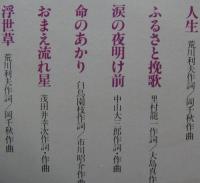 人生
荒川利夫作詞／岡千秋作曲
ふるさと挽歌
里村龍一作詞／大島真作
涙の夜明け前
中山大三郎作詞・作曲
命のあかり
白鳥園枝作詞／市川昭介作曲
おまえ流れ星
茂田井幸次作詞／岡千秋作曲
浮世草
荒川利夫作詞／岡千秋作曲